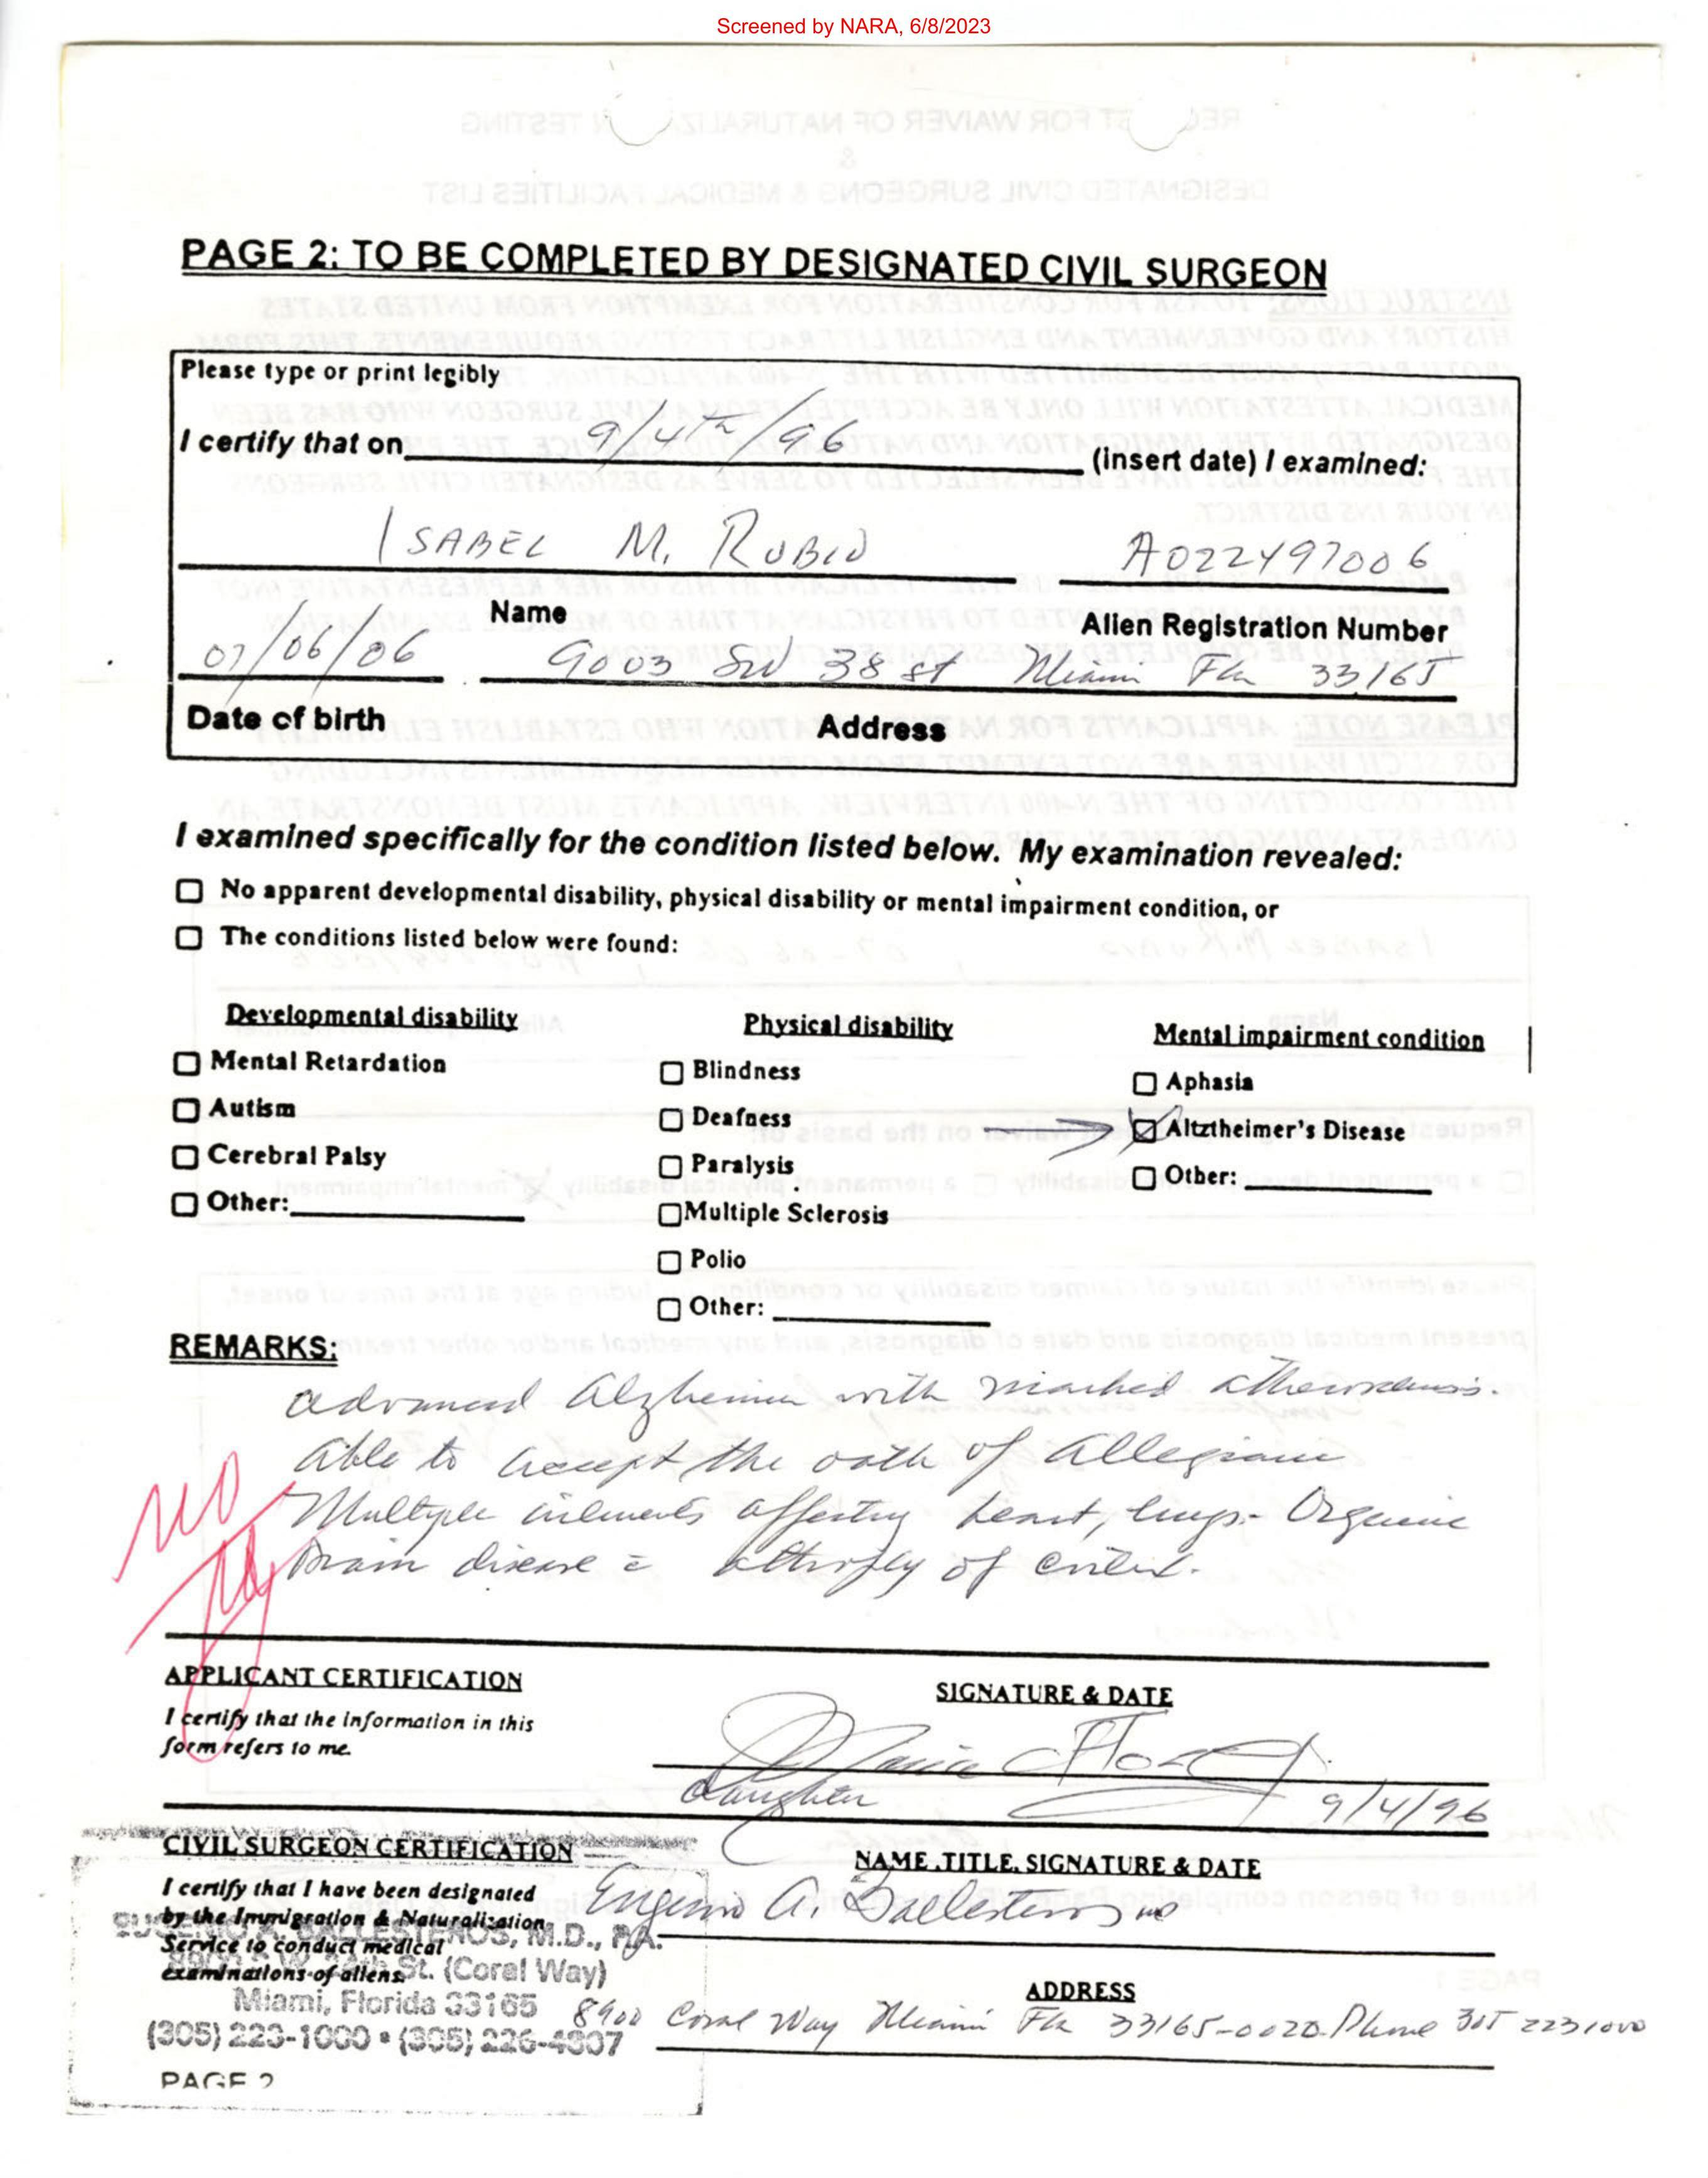 Screened by NARA, 6/8/2023
PAGE 2: TO BE COMPLETED BY DESIGNATED CIVIL SURGEON
Please type or print legibly
I certify that on 9/4th/96 (insert date) I examined:
ISABEL M. RUBIO A022497006
Name Alien Registration Number
07/06/06 9003 SW 38 st Miami Fla 33165
Date of birth Address
I examined specifically for the condition listed below. My examination revealed:
No apparent developmental disability, physical disability or mental impairment condition, or
The conditions listed below were found:
Developmental disability Physical disability Mental impairment condition
Mental Retardation Blindness Aphasia
Autism Deafness Altztheimer's Disease
Cerebral Palsy Paralysis Other:
Other: Multiple Sclerosis
Polio
Other:
REMARKS:
advanced Alzheimer with marked
able to accept the oath of allegiance
Multiple ailments affecting heart, lungs - Organic
Brain disease atrophy of
NO
APPLICANT CERTIFICATION SIGNATURE & DATE
I certify that the information in this
form refers to me.
Maria
daughter 9/4/96
CIVIL SURGEON CERTIFICATION NAME, TITLE, SIGNATURE & DATE
I certify that I have been designated
by the Immigration & Naturalization
Service to conduct medical
examinations of aliens.
Eugenio A. Ballesteros MD
EUGENIO A. BALLESTEROS, M.D., P.A.
24th St. (Coral Way)
Miami, Florida 33165
(305) 223-1000 • (305) 226-4807
ADDRESS
8900 Coral Way Miami Fla 33165-0020 Phone 305 2231000
PAGE 2